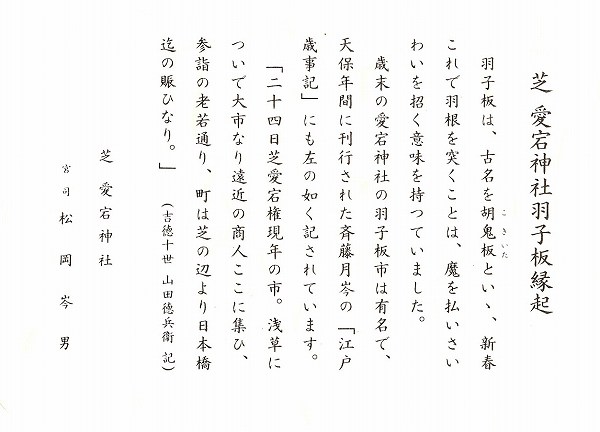 芝 愛宕神社羽子板縁起
羽子板は、古名を胡鬼板といゝ、新春
こきいた
これで羽根を突くことは、魔を払いさい
わいを招く意味を持つていました。
歳末の愛宕神社の羽子板市は有名で、
天保年間に刊行された斉藤月岑の「江戸
歳事記」にも左の如く記されています。
「二十四日芝愛宕権現年の市。浅草に
ついで大市なり遠近の商人ここに集ひ、
参詣の老若通り、町は芝の辺より日本橋
迄の賑ひなり。」 (吉徳十世 山田徳兵衛 記)
芝 愛宕神社
宮司 松岡岑男